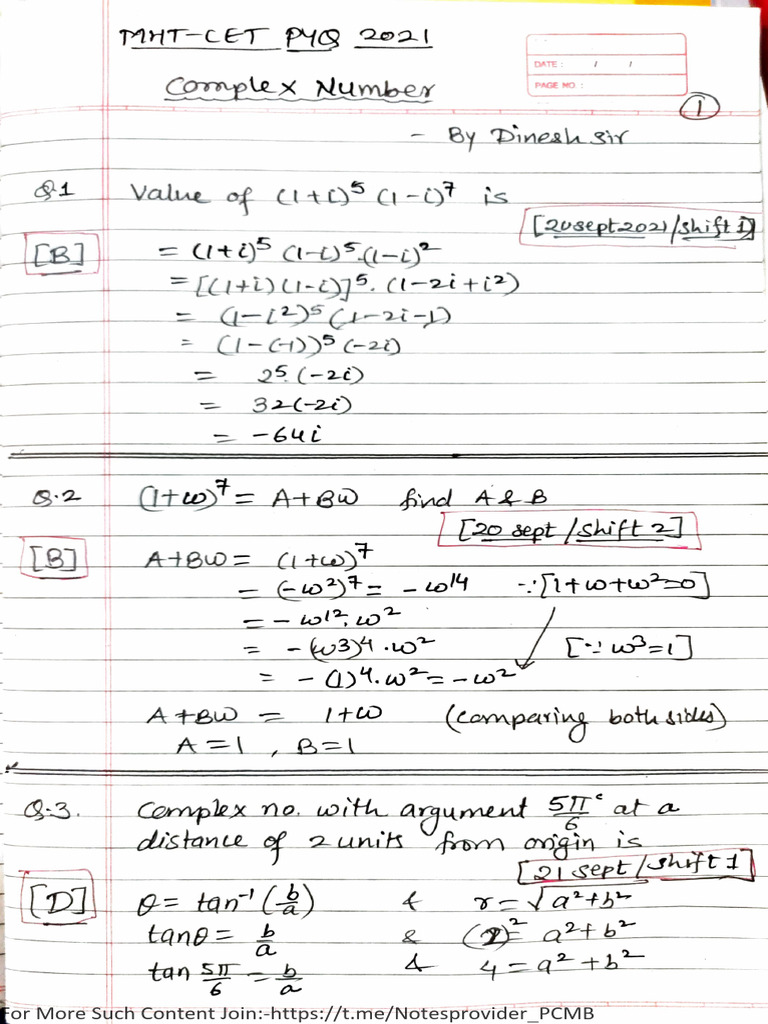 MHT-CET PYQ 2021
DATE : / /
PAGE NO :
Complex Number
1
- By Dinesh sir
Q.1 Value of (1+i)⁵ (1-i)⁷ is
[20 sept 2021/shift 1]
[B] = (1+i)⁵ (1-i)⁵.(1-i)²
= [(1+i)(1-i)]⁵. (1-2i+i²)
= (1-i²)⁵ (1-2i-1)
= (1-(-1))⁵ (-2i)
= 2⁵. (-2i)
= 32(-2i)
= -64i
Q.2 (1+ω)⁷ = A+Bω find A & B
[20 sept /shift 2]
[B] A+Bω = (1+ω)⁷
= (-ω²)⁷ = -ω¹⁴ ∵[1+ω+ω²=0]
= -ω¹². ω²
= -(ω3)⁴ . ω² [∵ ω³=1]
= -(1)⁴. ω² = -ω²
A+Bω = 1+ω (comparing both sides)
A=1 , B=1
Q.3. Complex no. with argument 5π/6 ᶜ at a
distance of 2 units from origin is
[21 sept /shift 1]
[D] θ = tan⁻¹ (b/a) & r = √a²+b²
tanθ = b/a & (2)² = a²+b²
tan 5π/6 = b/a & 4 = a²+b²
For More Such Content Join:-https://t.me/Notesprovider_PCMB